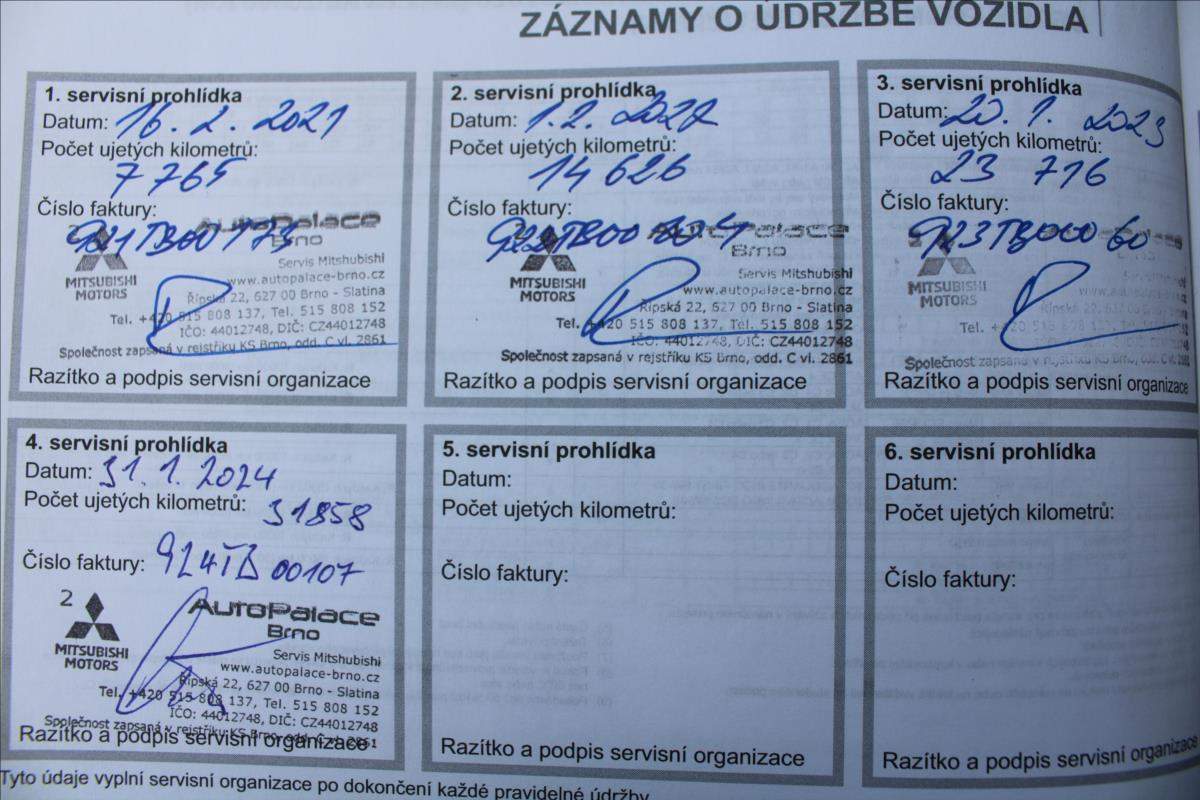 ZÁZNAMY O ÚDRŽBĚ VOZIDLA
1. servisní prohlídka
Datum: 16. 2. 2021
Počet ujetých kilometrů:
7 765
Číslo faktury:
921TB00173
AutoPalace
Brno
MITSUBISHI
MOTORS
Servis Mitshubishi
www.autopalace-brno.cz
Řípská 22, 627 00 Brno - Slatina
Tel. +420 515 808 137, Tel. 515 808 152
IČO: 44012748, DIČ: CZ44012748
Společnost zapsaná v rejstříku KS Brno, odd. C vl. 2861
Razítko a podpis servisní organizace
2. servisní prohlídka
Datum: 1.2. 2022
Počet ujetých kilometrů:
14 626
Číslo faktury:
AutoPalace
Brno
MITSUBISHI
MOTORS
Servis Mitshubishi
www.autopalace-brno.cz
Řípská 22, 627 00 Brno - Slatina
Tel. +420 515 808 137, Tel. 515 808 152
IČO: 44012748, DIČ: CZ44012748
Společnost zapsaná v rejstříku KS Brno, odd. C vl. 2861
Razítko a podpis servisní organizace
3. servisní prohlídka
Datum: 20. 1. 2023
Počet ujetých kilometrů:
23 716
Číslo faktury:
923TB00060
MITSUBISHI
MOTORS
Razítko a podpis servisní organizace
4. servisní prohlídka
Datum: 31.1.2024
Počet ujetých kilometrů: 31858
Číslo faktury: 924TB00107
2
AutoPalace
Brno
MITSUBISHI
MOTORS
Servis Mitshubishi
www.autopalace-brno.cz
Řípská 22, 627 00 Brno - Slatina
Tel. +420 515 808 137, Tel. 515 808 152
IČO: 44012748, DIČ: CZ44012748
Společnost zapsaná v rejstříku KS Brno, odd. C vl. 2861
Razítko a podpis servisní organizace
5. servisní prohlídka
Datum:
Počet ujetých kilometrů:
Číslo faktury:
Razítko a podpis servisní organizace
6. servisní prohlídka
Datum:
Počet ujetých kilometrů:
Číslo faktury:
Razítko a podpis servisní organizace
Tyto údaje vyplní servisní organizace po dokončení každé pravidelné údržby